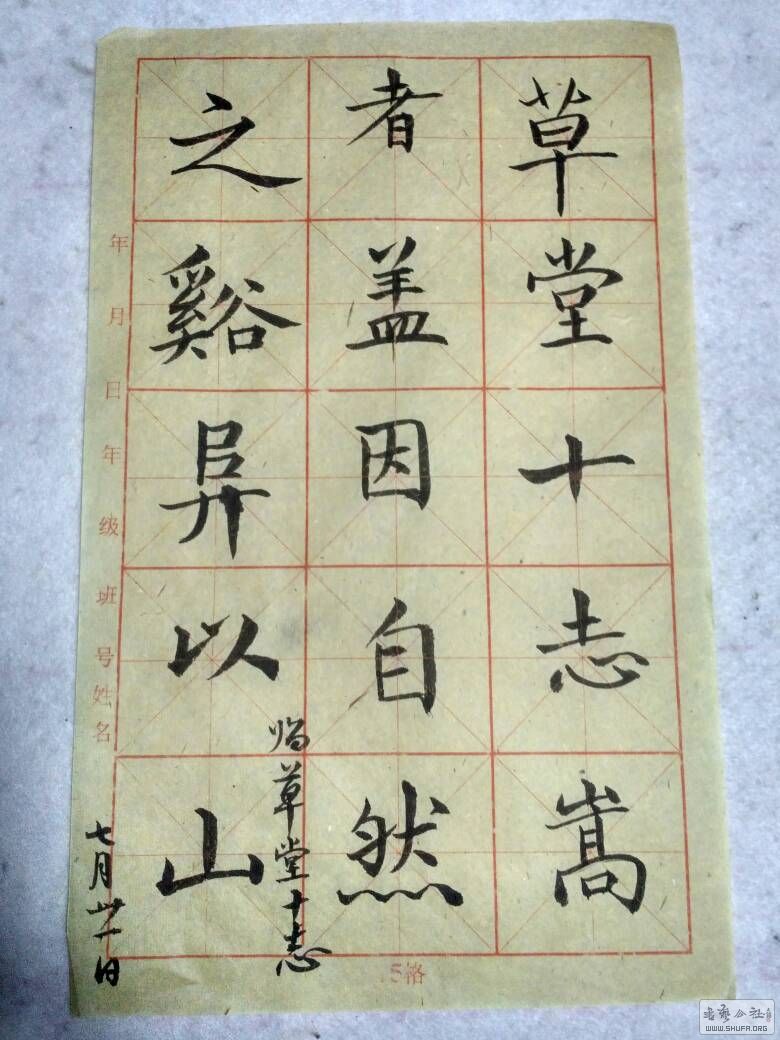 草堂十志嵩
者盖因自然
之谿阜以山
临草堂十志
七月卅一日
年 月 日 年 级 班 号 姓名
15格
书艺公社
WWW.SHUFA.ORG